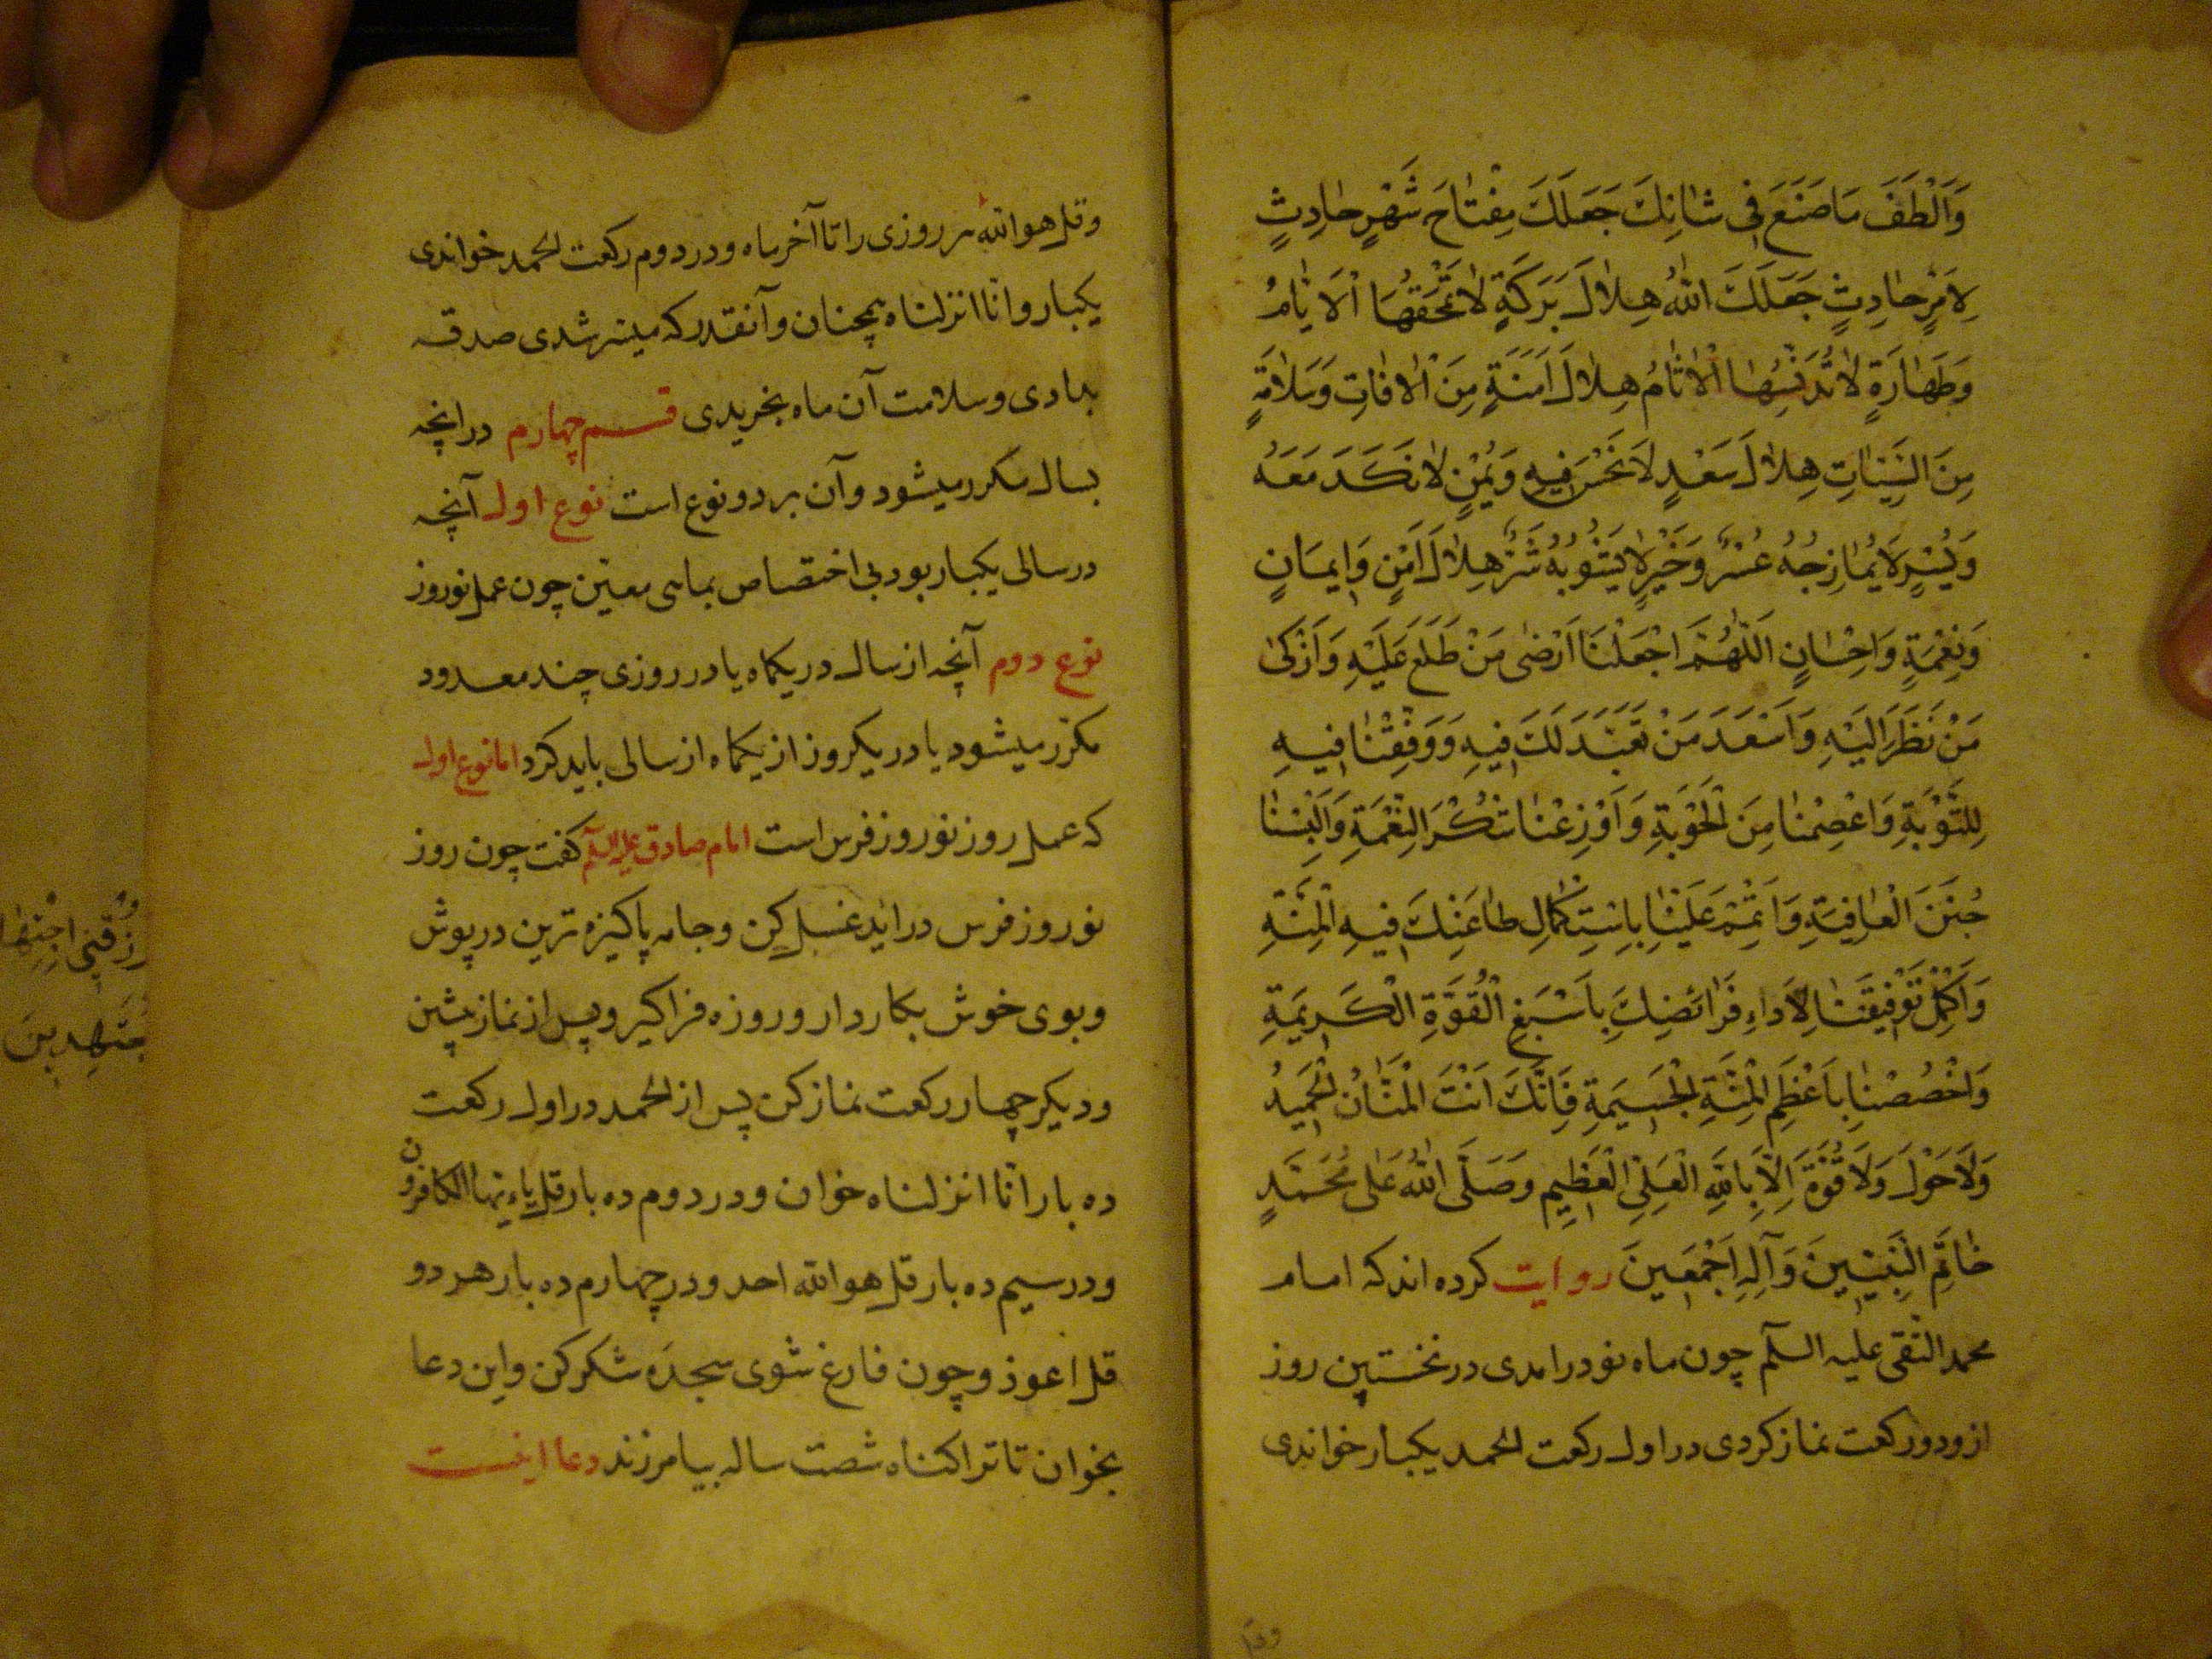 وَاَلْطَفَ مَا صَنَعَ فِی شٰانِكَ جَعَلَكَ مِفْتٰاحَ شَهْرٍ حٰادِثٍ
لِاَمْرٍ حٰادِثٍ جَعَلَكَ اللّٰهُ هِلٰالَ بَرَكَةٍ لٰا تَمْحَقُهَا اْلاَیّٰامُ
وَطَهٰارَةٍ لٰا تُدَنِّسُهَا اْلاٰثٰامُ هِلٰالَ اَمَنَةٍ مِنَ اْلاٰفٰاتِ وَسَلاٰمَةٍ
مِنَ السَّیِّئٰاتِ هِلٰالَ سَعْدٍ لاَ نَحْسَ فِیهِ وَیُمْنٍ لٰا نَكَدَ مَعَهُ
وَیُسْرٍ لاَ یُمٰازِجُهُ عُسْرٌ وَخَیْرٍ لٰا یَشُوبُهُ شَرٌّ هِلٰالَ اَمْنٍ وَاِیمَانٍ
وَنِعْمَةٍ وَاِحْسٰانٍ اَللّٰهُمَّ اجْعَلْنَا اَرْضٰی مَنْ طَلَعَ عَلَیْهِ وَاَزْكیٰ
مَنْ نَظَرَ اِلَیْهِ وَاَسْعَدَ مَنْ تَعَبَّدَ لَكَ فِیهِ وَوَفِّقْنٰا فِیهِ
لِلتَّوْبَةِ وَاعْصِمْنٰا مِنَ الْحَوْبَةِ وَاَوْزِعْنٰا شُكْرَ النِّعْمَةِ وَاَلْبِسْنٰا
جُنَنَ الْعٰافِیَةِ وَاَتْمِمْ عَلَیْنٰا بِاسْتِكْمٰالِ طٰاعَتِكَ فِیهِ الْمِنَّةِ
وَاَكْمِلْ تَوْفِیقَنٰا لِاَدٰاءِ فَرٰائِضِكَ بِاَسْبَغِ الْقُوَّةِ الْكَرِیمَةِ
وَاخْصُصْنٰا بِاَعْظَمِ الْمِنَّةِ الْجَسِیمَةِ فَاِنَّكَ اَنْتَ الْمَنّٰانُ الْحَمِیدُ
وَلاَ حَوْلَ وَلاَ قُوَّةَ اِلاّٰ بِاللّٰهِ الْعَلِیِّ الْعَظِیمِ وَصَلَّی اللّٰهُ عَلٰی مُحَمَّدٍ
خٰاتَمِ النَّبِیِّینَ وَآلِهِ اَجْمَعِینَ روایت کرده اند که امام
محمد التقی علیه السلم چون ماه نو درامدی در نخستین روز
ازو دو رکعت نماز کردی در اول رکعت الحمد یکبار خواندی
وقل هو الله هر روزی را تا آخر ماه و در دوم رکعت الحمد خواندی
یکبار و انا انزلناه همچنان و آنقدر که میسر شدی صدقه
بدادی و سلامت آن ماه بخریدی قسم چهارم درانچه
بسال مکرر میشود و آن بر دو نوع است نوع اول آنچه
در سالی یکبار بود بی اختصاص بماهی معین چون عمل نوروز
نوع دوم آنچه از سال در یکماه یا در روزی چند معدود
مکرر میشود یا در یکروز از یکماه از سالی باید کرد اما نوع اول
که عمل روز نوروز فرس است امام صادق علیه السلم کفت چون روز
نوروز فرس دراید غسل کن و جامه پاکیزه ترین درپوش
و بوی خوش بکار دار و روزه فراکیر و پس از نماز پیشین
و دیکر چهار رکعت نماز کن پس از الحمد در اول رکعت
ده بار انا انزلناه خوان و در دوم ده بار قل یا ایها الکافرون
و در سیم ده بار قل هو الله احد و در چهارم ده بار هر دو
قل اعوذ و چون فارغ شوی سجده شکر کن و این دعا
بخوان تا ترا کناه شصت ساله بیامرزند دعا اینست